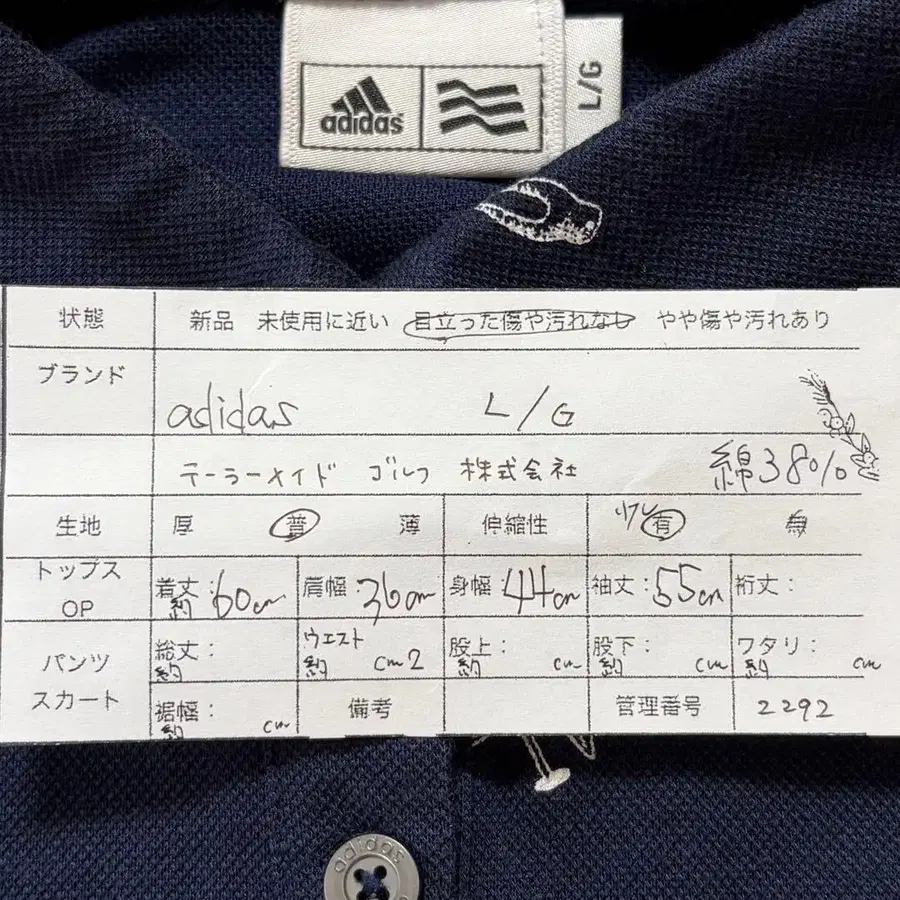 adidas
L/G
状態 新品 未使用に近い 目立った傷や汚れなし やや傷や汚れあり
ブランド
adidas L/G
テーラーメイド ゴルフ 株式会社 綿38%
生地 厚 普 薄 伸縮性 少し 有 無
トップス OP 着丈:約60cm 肩幅:36cm 身幅:44cm 袖丈:55cm 裄丈:
パンツ スカート 総丈:約 ウエスト約 cm2 股上:約 cm 股下:約 cm ワタリ:約 cm
裾幅:約 cm 備考 管理番号 2292
adidas